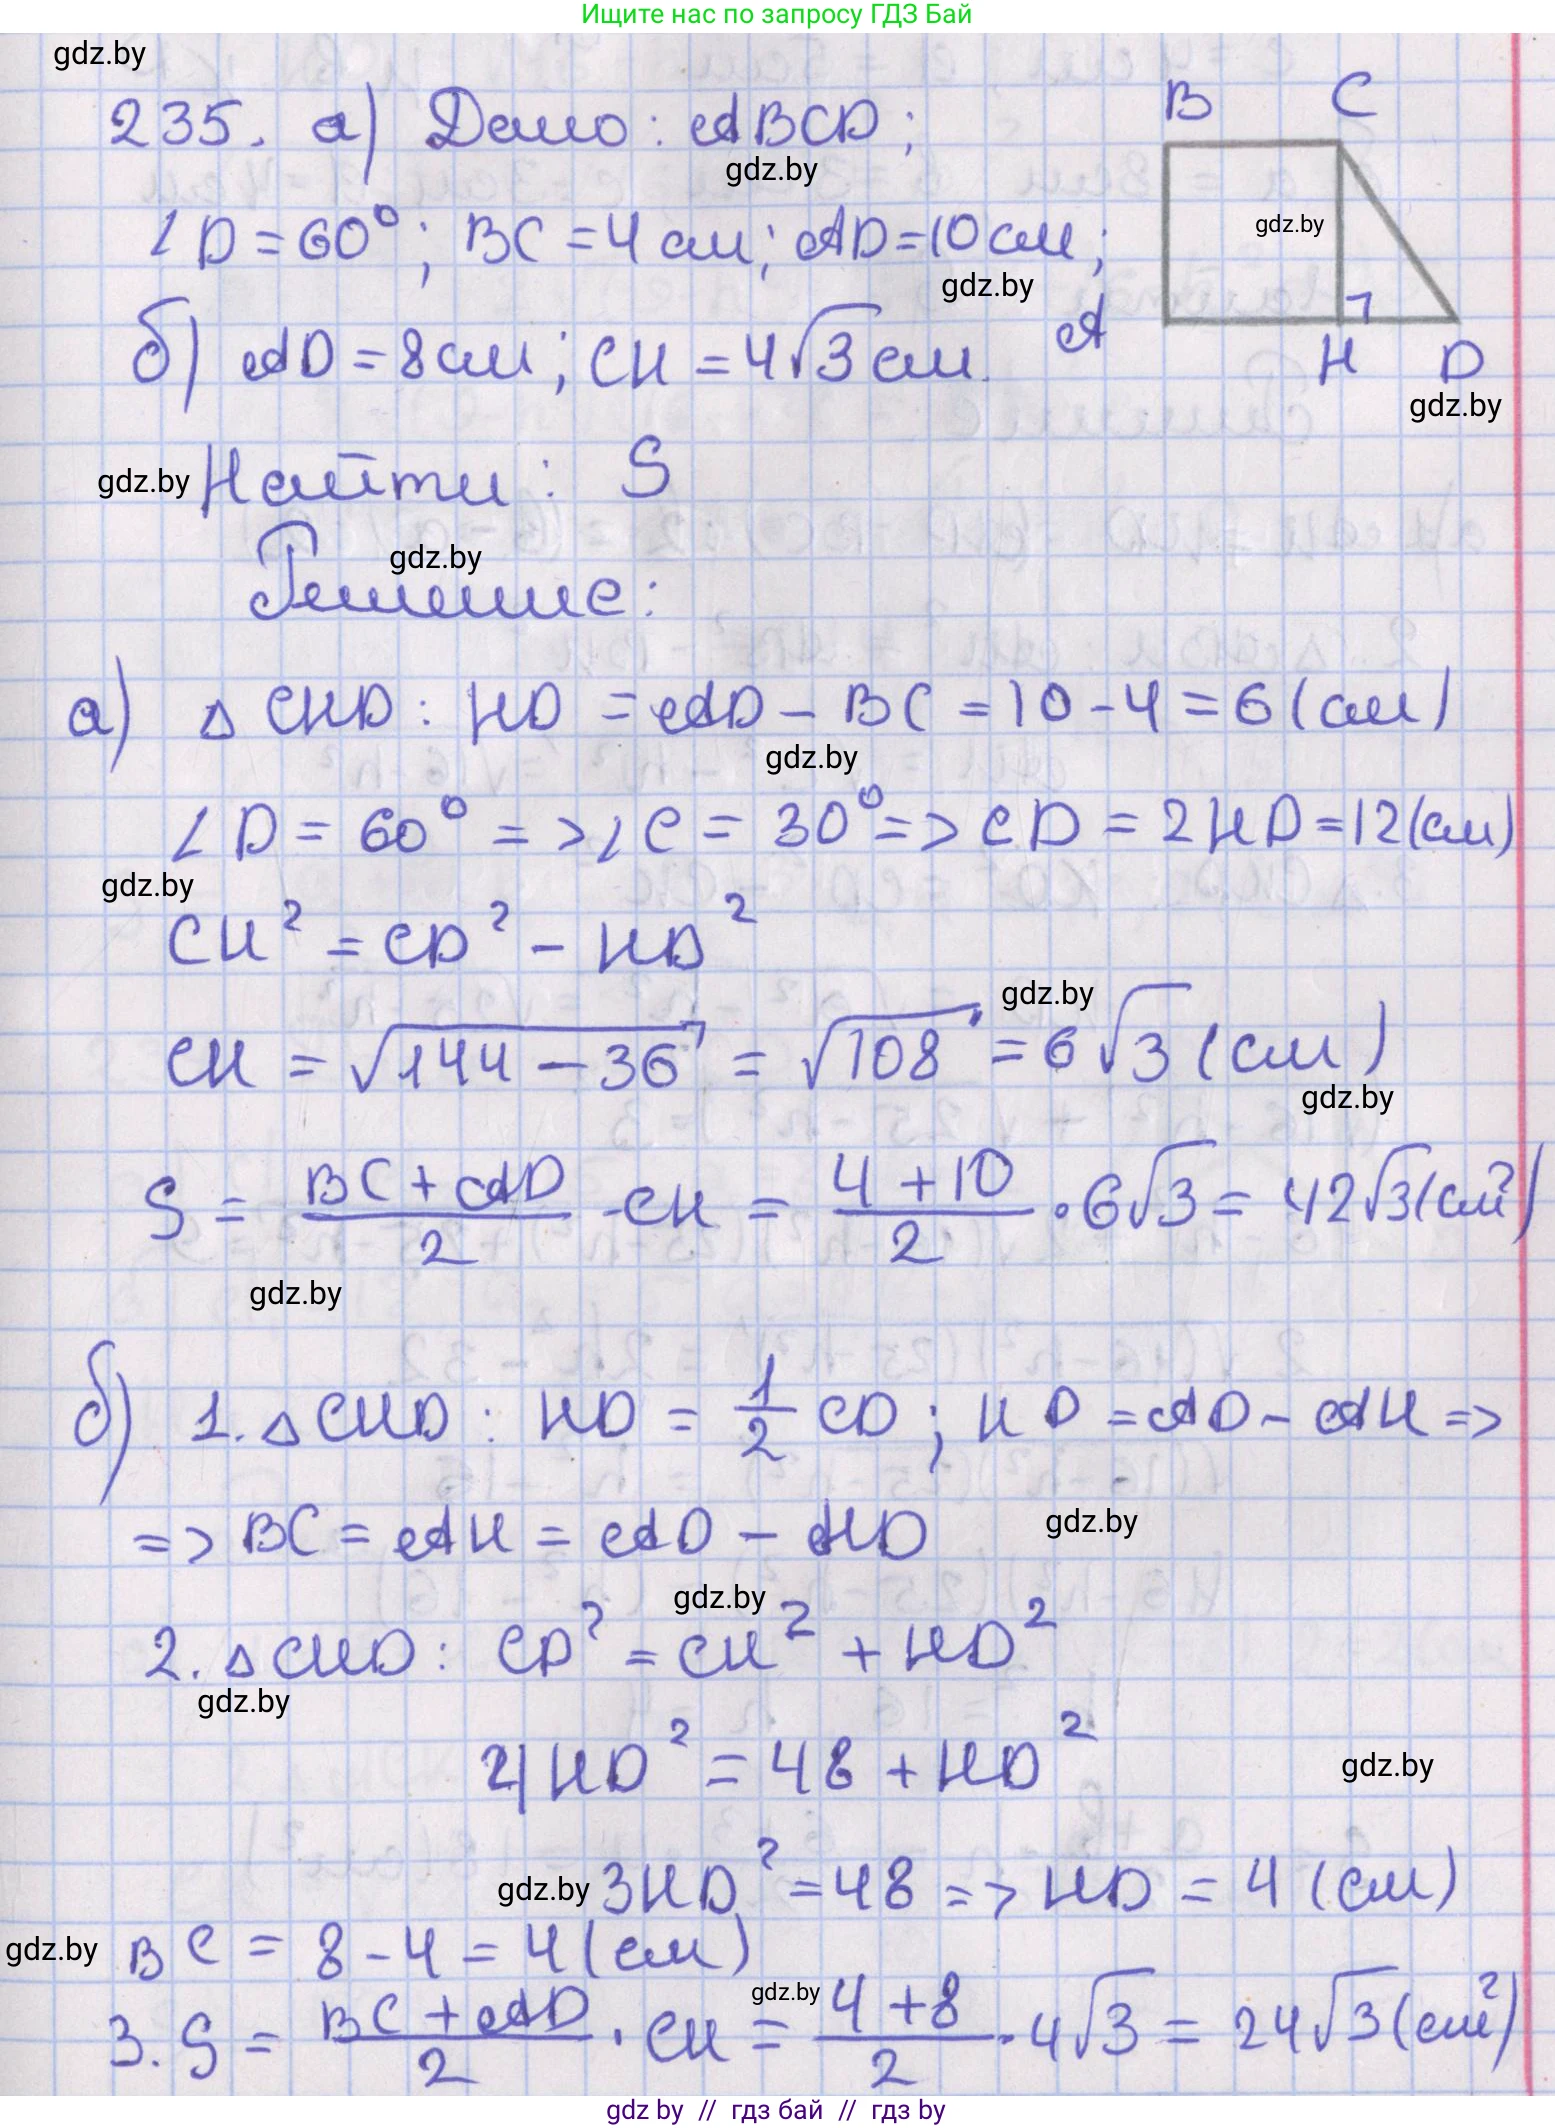 Ищите нас по запросу ГДЗ Бай
gdz.by
235. а) Дано: ABCD;
B C
gdz.by
gdz.by
∠D = 60°; BC = 4 см; AD = 10 см;
gdz.by
б) AD = 8 см; CH = 4√3 см.
A
H D
gdz.by
gdz.by
Найти: S
gdz.by
Решение:
а) △ CHD: HD = AD - BC = 10 - 4 = 6 (см)
gdz.by
∠D = 60° => ∠C = 30° => CD = 2HD = 12 (см)
gdz.by
CH² = CD² - HD²
gdz.by
CH = √144 - 36 = √108 = 6√3 (см)
gdz.by
S = BC + AD / 2 · CH = 4 + 10 / 2 · 6√3 = 42√3 (см²)
gdz.by
б) 1. △ CHD: HD = 1/2 CD; HD = AD - AH =>
=> BC = AH = AD - HD
gdz.by
gdz.by
2. △ CHD: CD² = CH² + HD²
gdz.by
4HD² = 48 + HD²
gdz.by
gdz.by
3HD² = 48 => HD = 4 (см)
gdz.by
BC = 8 - 4 = 4 (см)
gdz.by
3. S = BC + AD / 2 · CH = 4 + 8 / 2 · 4√3 = 24√3 (см²)
gdz by // гдз бай // гдз by